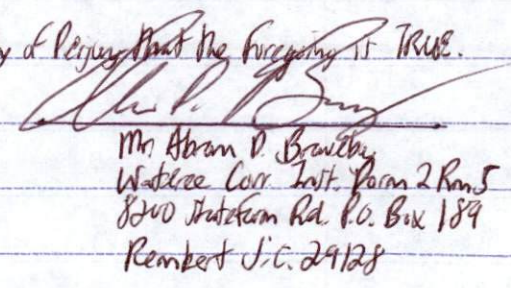 y of Perjury that the foregoing is TRUE.
Mr. Abram D.
Wateree Corr. Inst. Dorm 2 Rm 5
8200 Statefarm Rd. P.O. Box 189
Rembert S.C. 29128